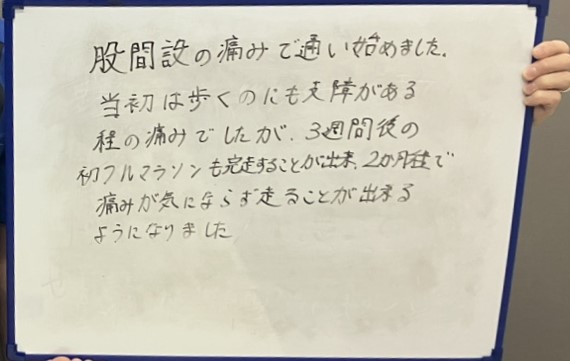 股間設の痛みで通い始めました。
当初は歩くのにも支障がある
程の痛みでしたが、3週間後の
初フルマラソンも完走することが出来、2か月程で
痛みが気にならず走ることが出来る
ようになりました